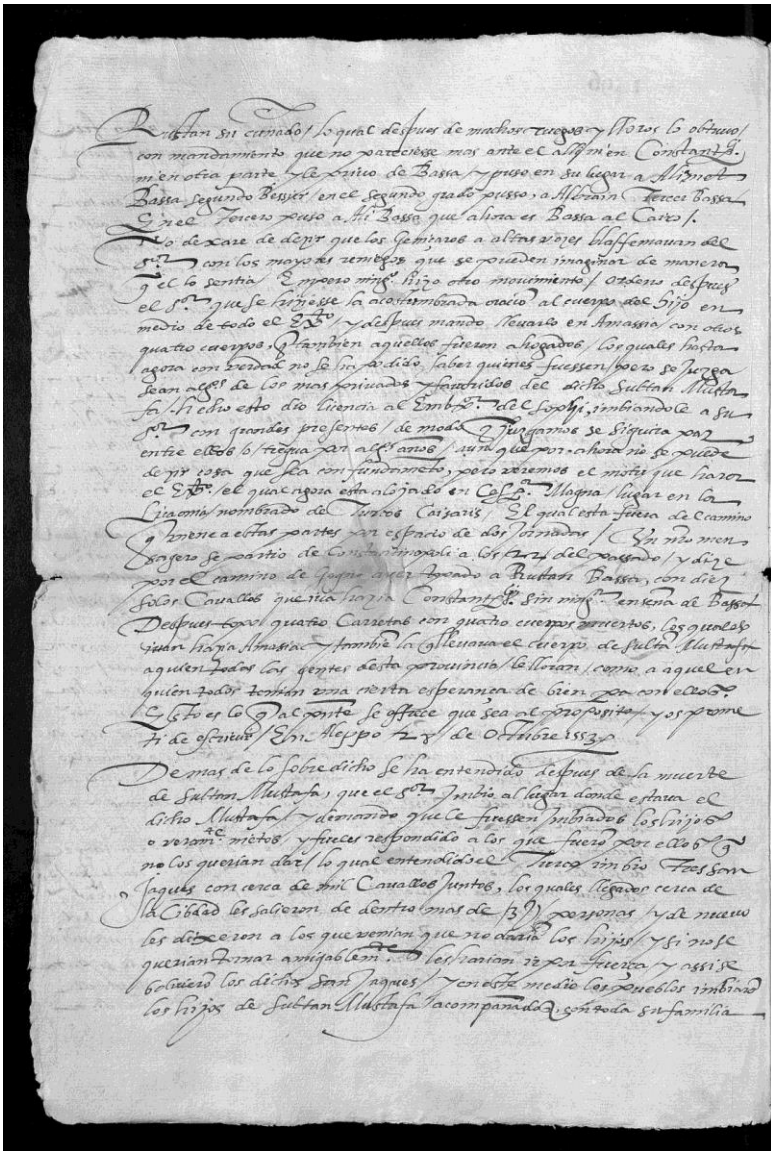 Rustan su cuñado / lo qual despues de muchos ruegos y lloros lo obtuvo /
con mandamiento que no pareciesse mas ante el allj ni en Constantp.
ni en otra parte y le privo de Bassa / y puso en su lugar a Ahmet
Bassa segundo Bessir / en el segundo grado pusso, a Abrain Tercer Bassa
En el Tercero puso a Ali Bassa que ahora es Bassa al Cairo /.
No dexare de dezir que los Genizaros a altas vozes blasfemavan del
s.or con los mayores reniegos que se pueden imaginar de manera
q el lo sentia / Empero ning.o hizo otro movimiento / ordeno despues
el s.or que se hiziesse la acostumbrada oracion al cuerpo del hijo en
medio de todo el Ex.to / y despues mando llevarlo en Amassia / con otros
quatro cuerpos, q tambien aquellos fueron ahogados / los quales hasta
agora con verdad no se ha podido, saber quienes fuessen / pero se Juzga
sean alg.os de los mas privados y favoridos del dicho Sultan Musta
fa / hecho esto dio licencia al Emb.or del sophi, imbiandole a su
s.or con grandes presentes / de modo q Juzgamos se siguira paz
entre ellos / o / tregua por alg.os anos / aun que por, ahora no se puede
dezir cosa que sea con fundameto, pero veremos el motiv que hara
el Ex.to / el qual agora esta alojado en Magna / lugar en la
Licaonia / nombrado de Turcos Caisaris / El qual esta fuera del camino
q viene a estas partes por espacio de dos Jornadas / Un nro men
sagero se partio de Constantinopoli a los 24 del passado / y dize
por el camino de aver topado a Rustan Bassa, con diez
solos Cavallos que iva hazia Constantp. sin ning.a ensena de Bassa /
Despues topo quatro Carretas con quatro cuerpos muertos, los quales
ivan hazia Amassia y tambie la q llevava el cuerpo, de sultan Mustafa
a quien todas las gentes desta provincia / le lloran / como, a aquel en
quien todos tenian una cierta esperança de bien pa con ellos.
Esto es lo q al pnte se offrece que sea al proposito y os prome
ti de escrivir / En Aleppo de Octubre 1553 /
De mas de lo sobre dicho se ha entendido despues de la muerte
de sultan Mustafa, que el s.or Imbio al lugar donde estava el
dicho Mustafa / y demando que le fuessen imbiados los hijos
o veram.te nietos / y fueles respondido a los que fuero por ellos q
no los querian dar / lo qual entendido el Turco imbio Tres San
Jaques con cerca de mil Cavallos Juntos, los quales llegados cerca de
la Cibdad les salieron de dentro mas de personas / y de nuevo
les dixeron a los que venian que no darian los hijos / y si no se
querian tornar amigablem.te q les harian ir por fuerca / y assi se
bolviero los dichos San Jaques / y en este medio los pueblos imbiaro
los hijos de sultan Mustafa acompañados, con toda su familia